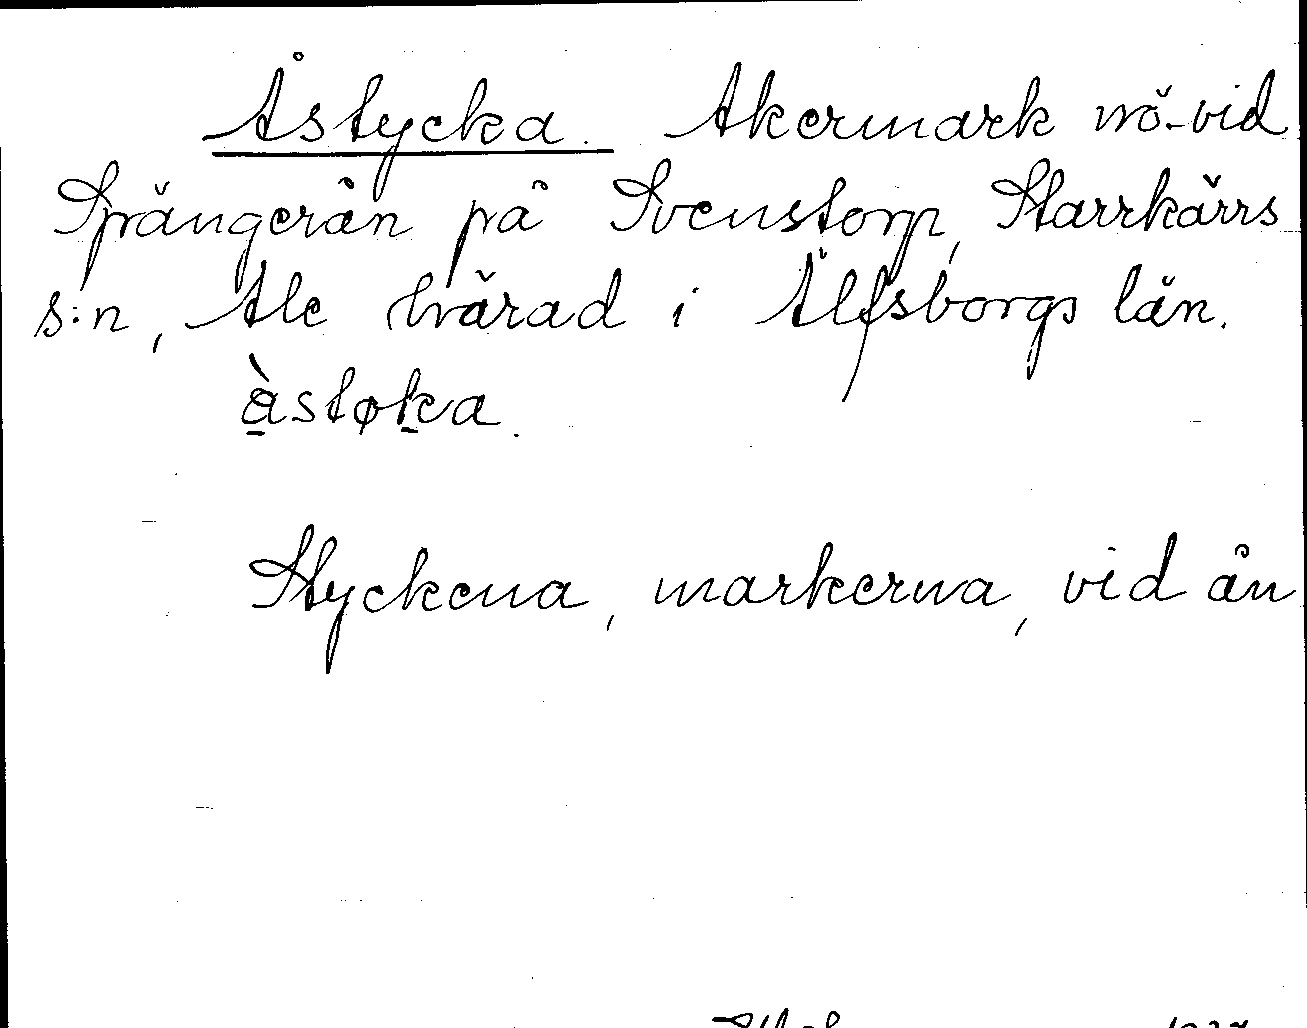 Åstycka. Åkermark nö. vid
Sprängerån på Svenstorp, Starrkärrs
s:n, Ale härad i Älfsborgs län.
åstøka.
Styckena, markerna, vid ån